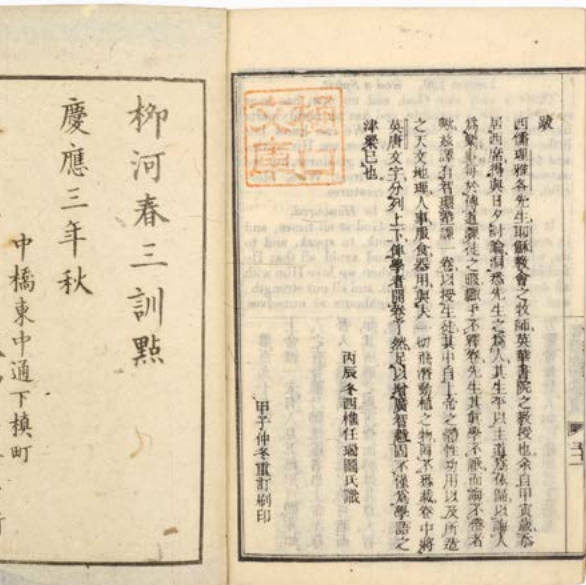 跋
西儒理雅各先生耶穌教會之牧師英華書院之教授也余自甲寅歲忝
居西席得與日夕討論洞悉先生之爲人其生平以主道爲依歸以誨人
爲樂事每於傳道課徒之暇手不釋卷先生其眞學不厭而誨不倦者
歟茲譯有智環啓蒙課一卷以授生徒其中自上帝之體性功用以及所造
之天文地理人事服食器用與夫一切飛潛動植之物罔不悉載卷中將
英唐文字分列上下俾學者開卷了然足以增廣智識固不僅爲學語之
津梁已也
丙辰冬西樵任瑞圖氏識
甲子仲冬重訂刷印
柳河春三訓點
慶應三年秋
中橋東中通下槇町